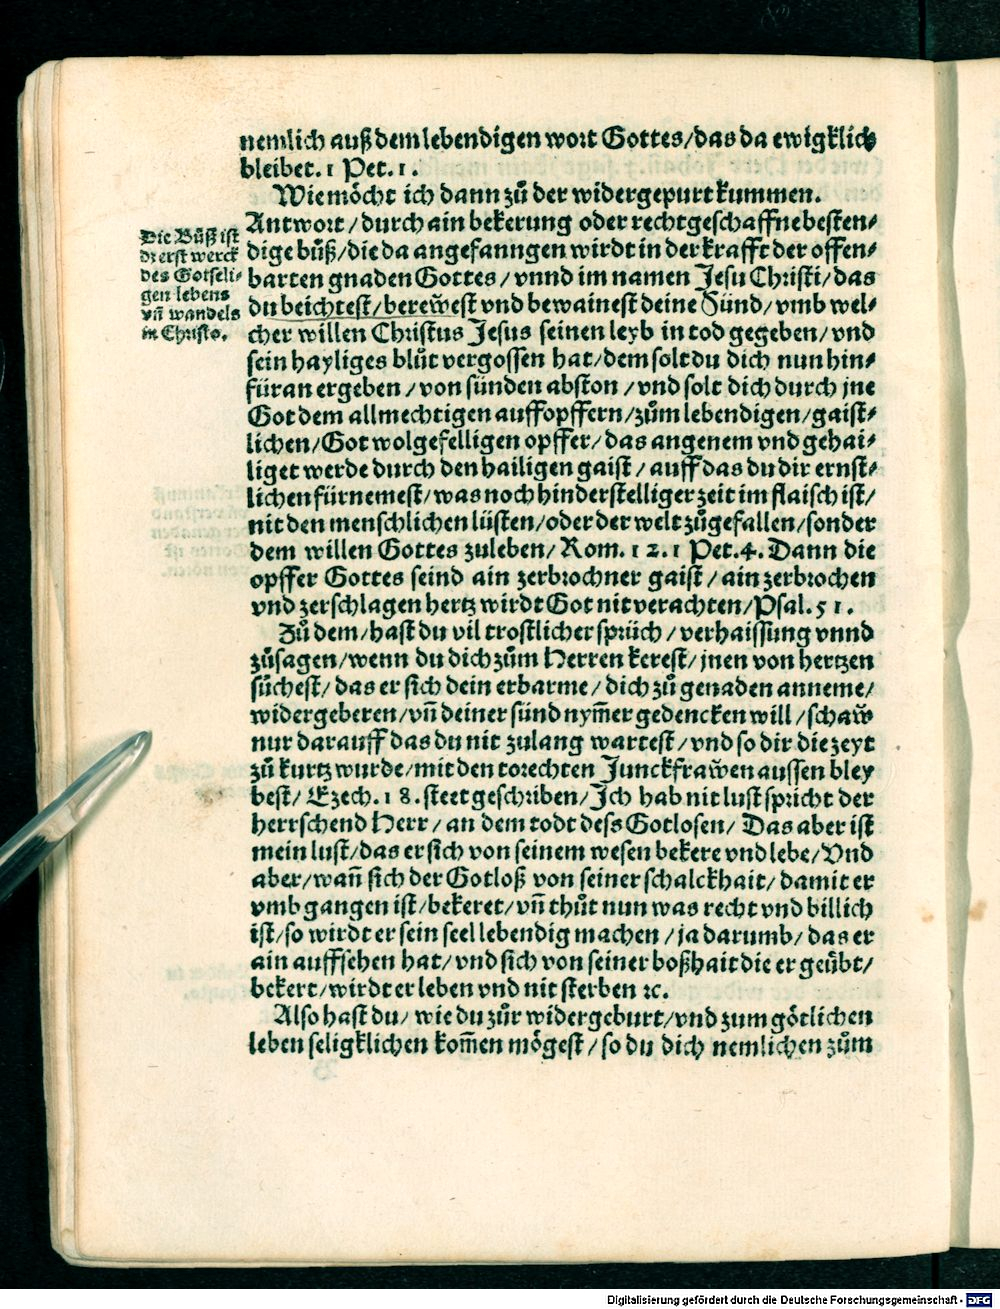 nemlich auß dem lebendigen wort Gottes/das da ewigklich
bleibet. 1 Pet. 1.
Wie möcht ich dann zů der widergepurt kummen.
Antwort/durch ain bekerung oder rechtgeschaffne besten⸗
dige bůß/die da angefanngen wirdt in der krafft der offen⸗
barten gnaden Gottes/vnnd im namen Jesu Christi/das
du beichtest/berewest vnd bewainest deine Sünd/vmb wel⸗
cher willen Christus Jesus seinen leyb in tod gegeben/vnd
sein hayliges blůt vergossen hat/dem solt du dich nun hin⸗
füran ergeben/von sünden abston/vnd solt dich durch jne
Got dem allmechtigen auffopffern/zům lebendigen/gaist⸗
lichen/Got wolgefelligen opffer/das angenem vnd gehai⸗
liget werde durch den hailigen gaist/auff das du dir ernst⸗
lichen fürnemest/was noch hinderstelliger zeit im flaisch ist/
nit den menschlichen lüsten/oder der welt zůgefallen/sonder
dem willen Gottes zuleben/Rom. 12. 1 Pet. 4. Dann die
opffer Gottes seind ain zerbrochner gaist/ain zerbrochen
vnd zerschlagen hertz wirdt Got nit verachten/Psal. 51.
Zů dem/hast du vil trostlicher sprüch/verhaissung vnnd
zůsagen/wenn du dich zům Herren kerest/jnen von hertzen
sůchest/das er sich dein erbarme/dich zů genaden anneme/
widergeberen/vñ deiner sünd nym̃er gedencken will/schaw̃
nur darauff das du nit zulang wartest/vnd so dir die zeyt
zů kurtz wurde/mit den torechten Junckfraw̃en aussen bley
best/Ezech. 18. steet geschriben/Ich hab nit lust spricht der
herrschend Herr/an dem todt dess Gotlosen/Das aber ist
mein lust/das er sich von seinem wesen bekere vnd lebe/Vnd
aber/wañ sich der Gotloß von seiner schalckhait/damit er
vmbgangen ist/bekeret/vñ thůt nun was recht vnd billich
ist/so wirdt er sein seel lebendig machen/ja darumb/das er
ain auffsehen hat/vnd sich von seiner boßhait die er geübt/
bekert/wirdt er leben vnd nit sterben ꝛc.
Also hast du/wie du zůr widergeburt/vnd zum götlichen
leben seligklichen kom̃en mögest/so du dich nemlichen zům
Die Bůß ist
dz erst werck
des Gotseli⸗
gen lebens
vñ wandels
in Christo.
Digitalisierung gefördert durch die Deutsche Forschungsgemeinschaft - DFG